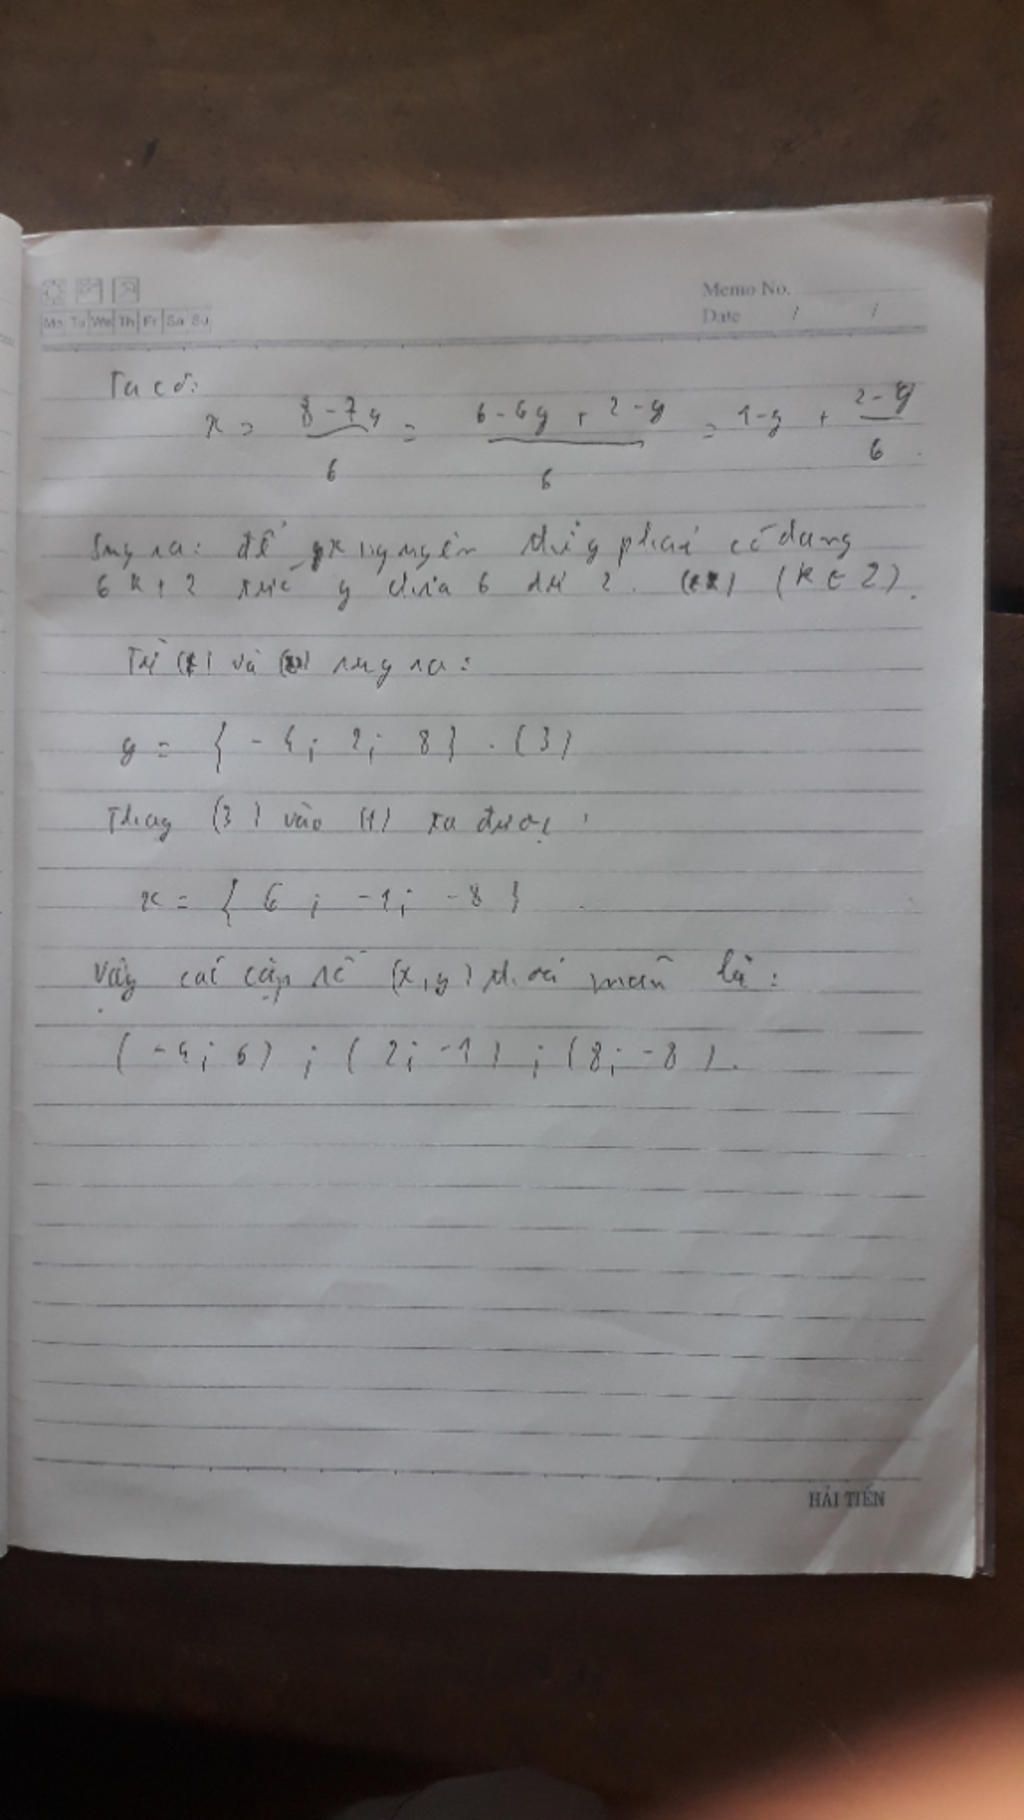 Memo No.
Mo Tu We Th Fr Sa Su
Date / /
Ta có:
x = 8 - 7y / 6 = 6 - 6y + 2 - y / 6 = 1 - y + 2 - y / 6
Suy ra: để x nguyên thì y phải có dạng
6k + 2 tức y chia 6 dư 2. (**) (k ∈ Z).
Từ (*) và (**) suy ra:
y = { - 4; 2; 8 } . (3)
Thay (3) vào (1) ta được:
x = { 6 ; -1; -8 }
Vậy các cặp số (x, y) thoả mãn là:
( -4; 6) ; ( 2; -1) ; (8; -8).
HẢI TIẾN